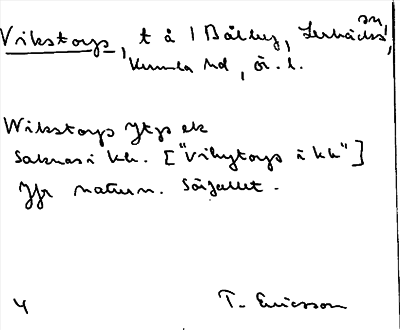 Vikstorp, t å 1 Bålby, Lerbäcks sn,
Kumla hd, ör. l.
Wikstorps ytps ek
Saknas i kk. ["Vibytorps i kk"]
Jfr naturn. Sörfallet.
4 T. Ericsson